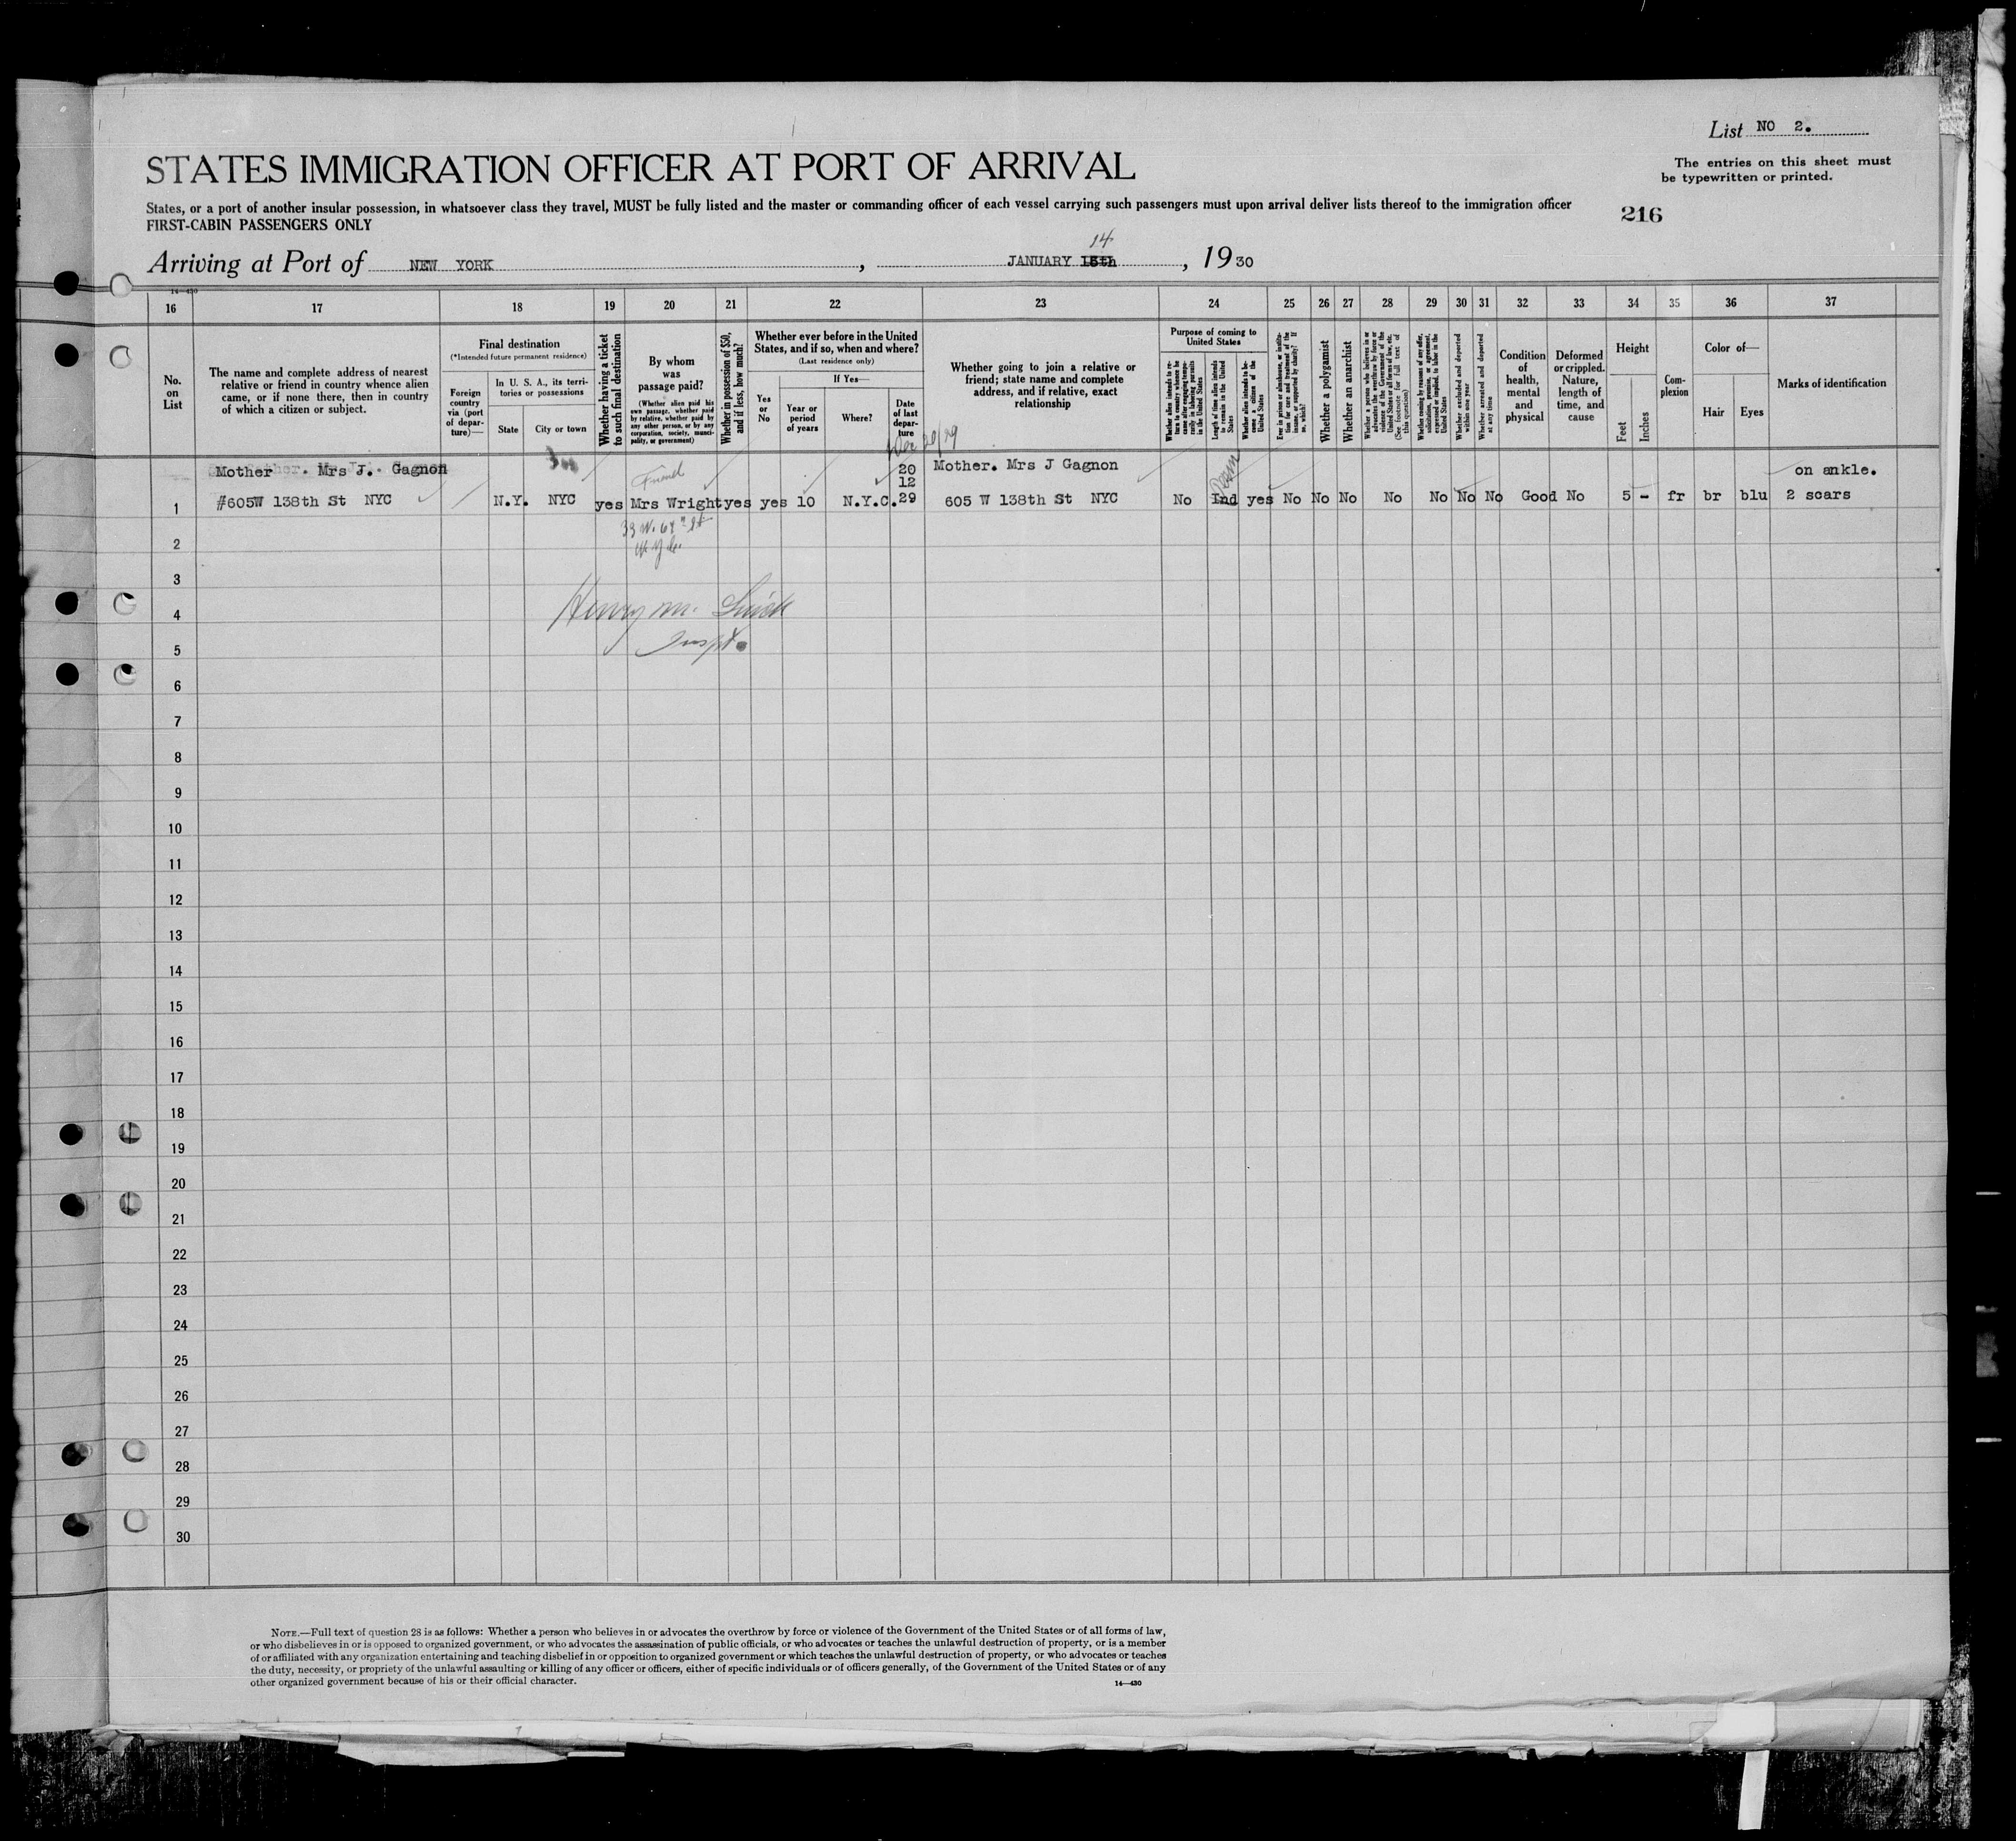 List NO 2.
STATES IMMIGRATION OFFICER AT PORT OF ARRIVAL
The entries on this sheet must
be typewritten or printed.
States, or a port of another insular possession, in whatsoever class they travel, MUST be fully listed and the master or commanding officer of each vessel carrying such passengers must upon arrival deliver lists thereof to the immigration officer
FIRST-CABIN PASSENGERS ONLY
216
14
Arriving at Port of NEW YORK, JANUARY 15th, 1930
14—430
16 17 18 19 20 21 22 23 24 25 26 27 28 29 30 31 32 33 34 35 36 37
No.
on
List
The name and complete address of nearest
relative or friend in country whence alien
came, or if none there, then in country
of which a citizen or subject.
Final destination
(*Intended future permanent residence)
Foreign
country
via (port
of depar-
ture)—
In U. S. A., its terri-
tories or possessions
State
City or town
Whether having a ticket
to such final destination
By whom
was
passage paid?
(Whether alien paid his
own passage, whether paid
by relative, whether paid by
any other person, or by any
corporation, society, munici-
pality, or government)
Whether in possession of $50,
and if less, how much?
Whether ever before in the United
States, and if so, when and where?
(Last residence only)
Yes
or
No
If Yes—
Year or
period
of years
Where?
Date
of last
depar-
ture
Whether going to join a relative or
friend; state name and complete
address, and if relative, exact
relationship
Purpose of coming to
United States
Whether alien intends to re-
turn to country whence he
came after engaging tempo-
rarily in laboring pursuits
in the United States
Length of time alien intends
to remain in the United
States
Whether alien intends to be-
come a citizen of the
United States
Ever in prison or almshouse, or institu-
tion for care and treatment of the
insane, or supported by charity? If
so, which?
Whether a polygamist
Whether an anarchist
Whether a person who believes in or
advocates the overthrow by force or
violence of the Government of the
United States or all forms of law, etc.
(See footnote for full text of
this question)
Whether coming by reason of any offer,
solicitation, promise, or agreement,
expressed or implied, to labor in the
United States
Whether excluded and deported
within one year
Whether arrested and deported
at any time
Condition
of
health,
mental
and
physical
Deformed
or crippled.
Nature,
length of
time, and
cause
Height
Feet
Inches
Com-
plexion
Color of—
Hair
Eyes
Marks of identification
Dec 20/29
Mother. Mrs J. Gagnon Friend 20 Mother. Mrs J Gagnon Perm on ankle.
12
1 #605W 138th St NYC N.Y. NYC yes Mrs Wright yes yes 10 N.Y.C. 29 605 W 138th St NYC No Ind yes No No No No No No No Good No 5 - fr br blu 2 scars
33 W. 67th St
N.Y.C.
2
3
Henry M.
4
Inspt.
5
6
7
8
9
10
11
12
13
14
15
16
17
18
19
20
21
22
23
24
25
26
27
28
29
30
NOTE.—Full text of question 28 is as follows: Whether a person who believes in or advocates the overthrow by force or violence of the Government of the United States or of all forms of law,
or who disbelieves in or is opposed to organized government, or who advocates the assassination of public officials, or who advocates or teaches the unlawful destruction of property, or is a member
of or affiliated with any organization entertaining and teaching disbelief in or opposition to organized government or which teaches the unlawful destruction of property, or who advocates or teaches
the duty, necessity, or propriety of the unlawful assaulting or killing of any officer or officers, either of specific individuals or of officers generally, of the Government of the United States or of any
other organized government because of his or their official character.
14—430